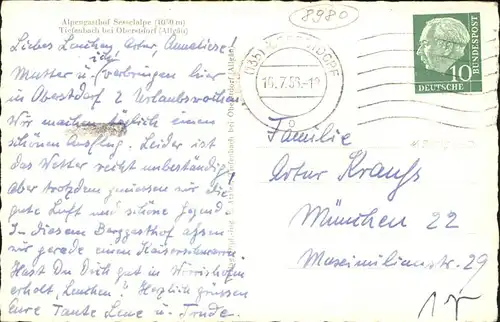 Alpengasthof Sesselalpe (1050 m)
Tiefenbach bei Oberstdorf (Allgäu)
8980
(13b) OBERSTDORF
16.7.56.-1
10
DEUTSCHE
BUNDESPOST
Liebes Lenchen, Artur, Anneliese!
Mutter u. ich verbringen hier
in Oberstdorf 2 Urlaubswochen
Wir machen täglich einen
schönen Ausflug. Leider ist
das Wetter recht unbeständig
aber trotzdem geniessen wir die
gute Luft und schöne Gegend.
In diesem Berggasthof assen
wir gerade einen Kaiserschmarrn
Hast Du Dich gut in Wörishofen
erholt, Lenchen? Herzlich grüssen
Eure Tante Lene u. Trude.
Familie
Artur Krauss
München 22
Maximilianstr. 29